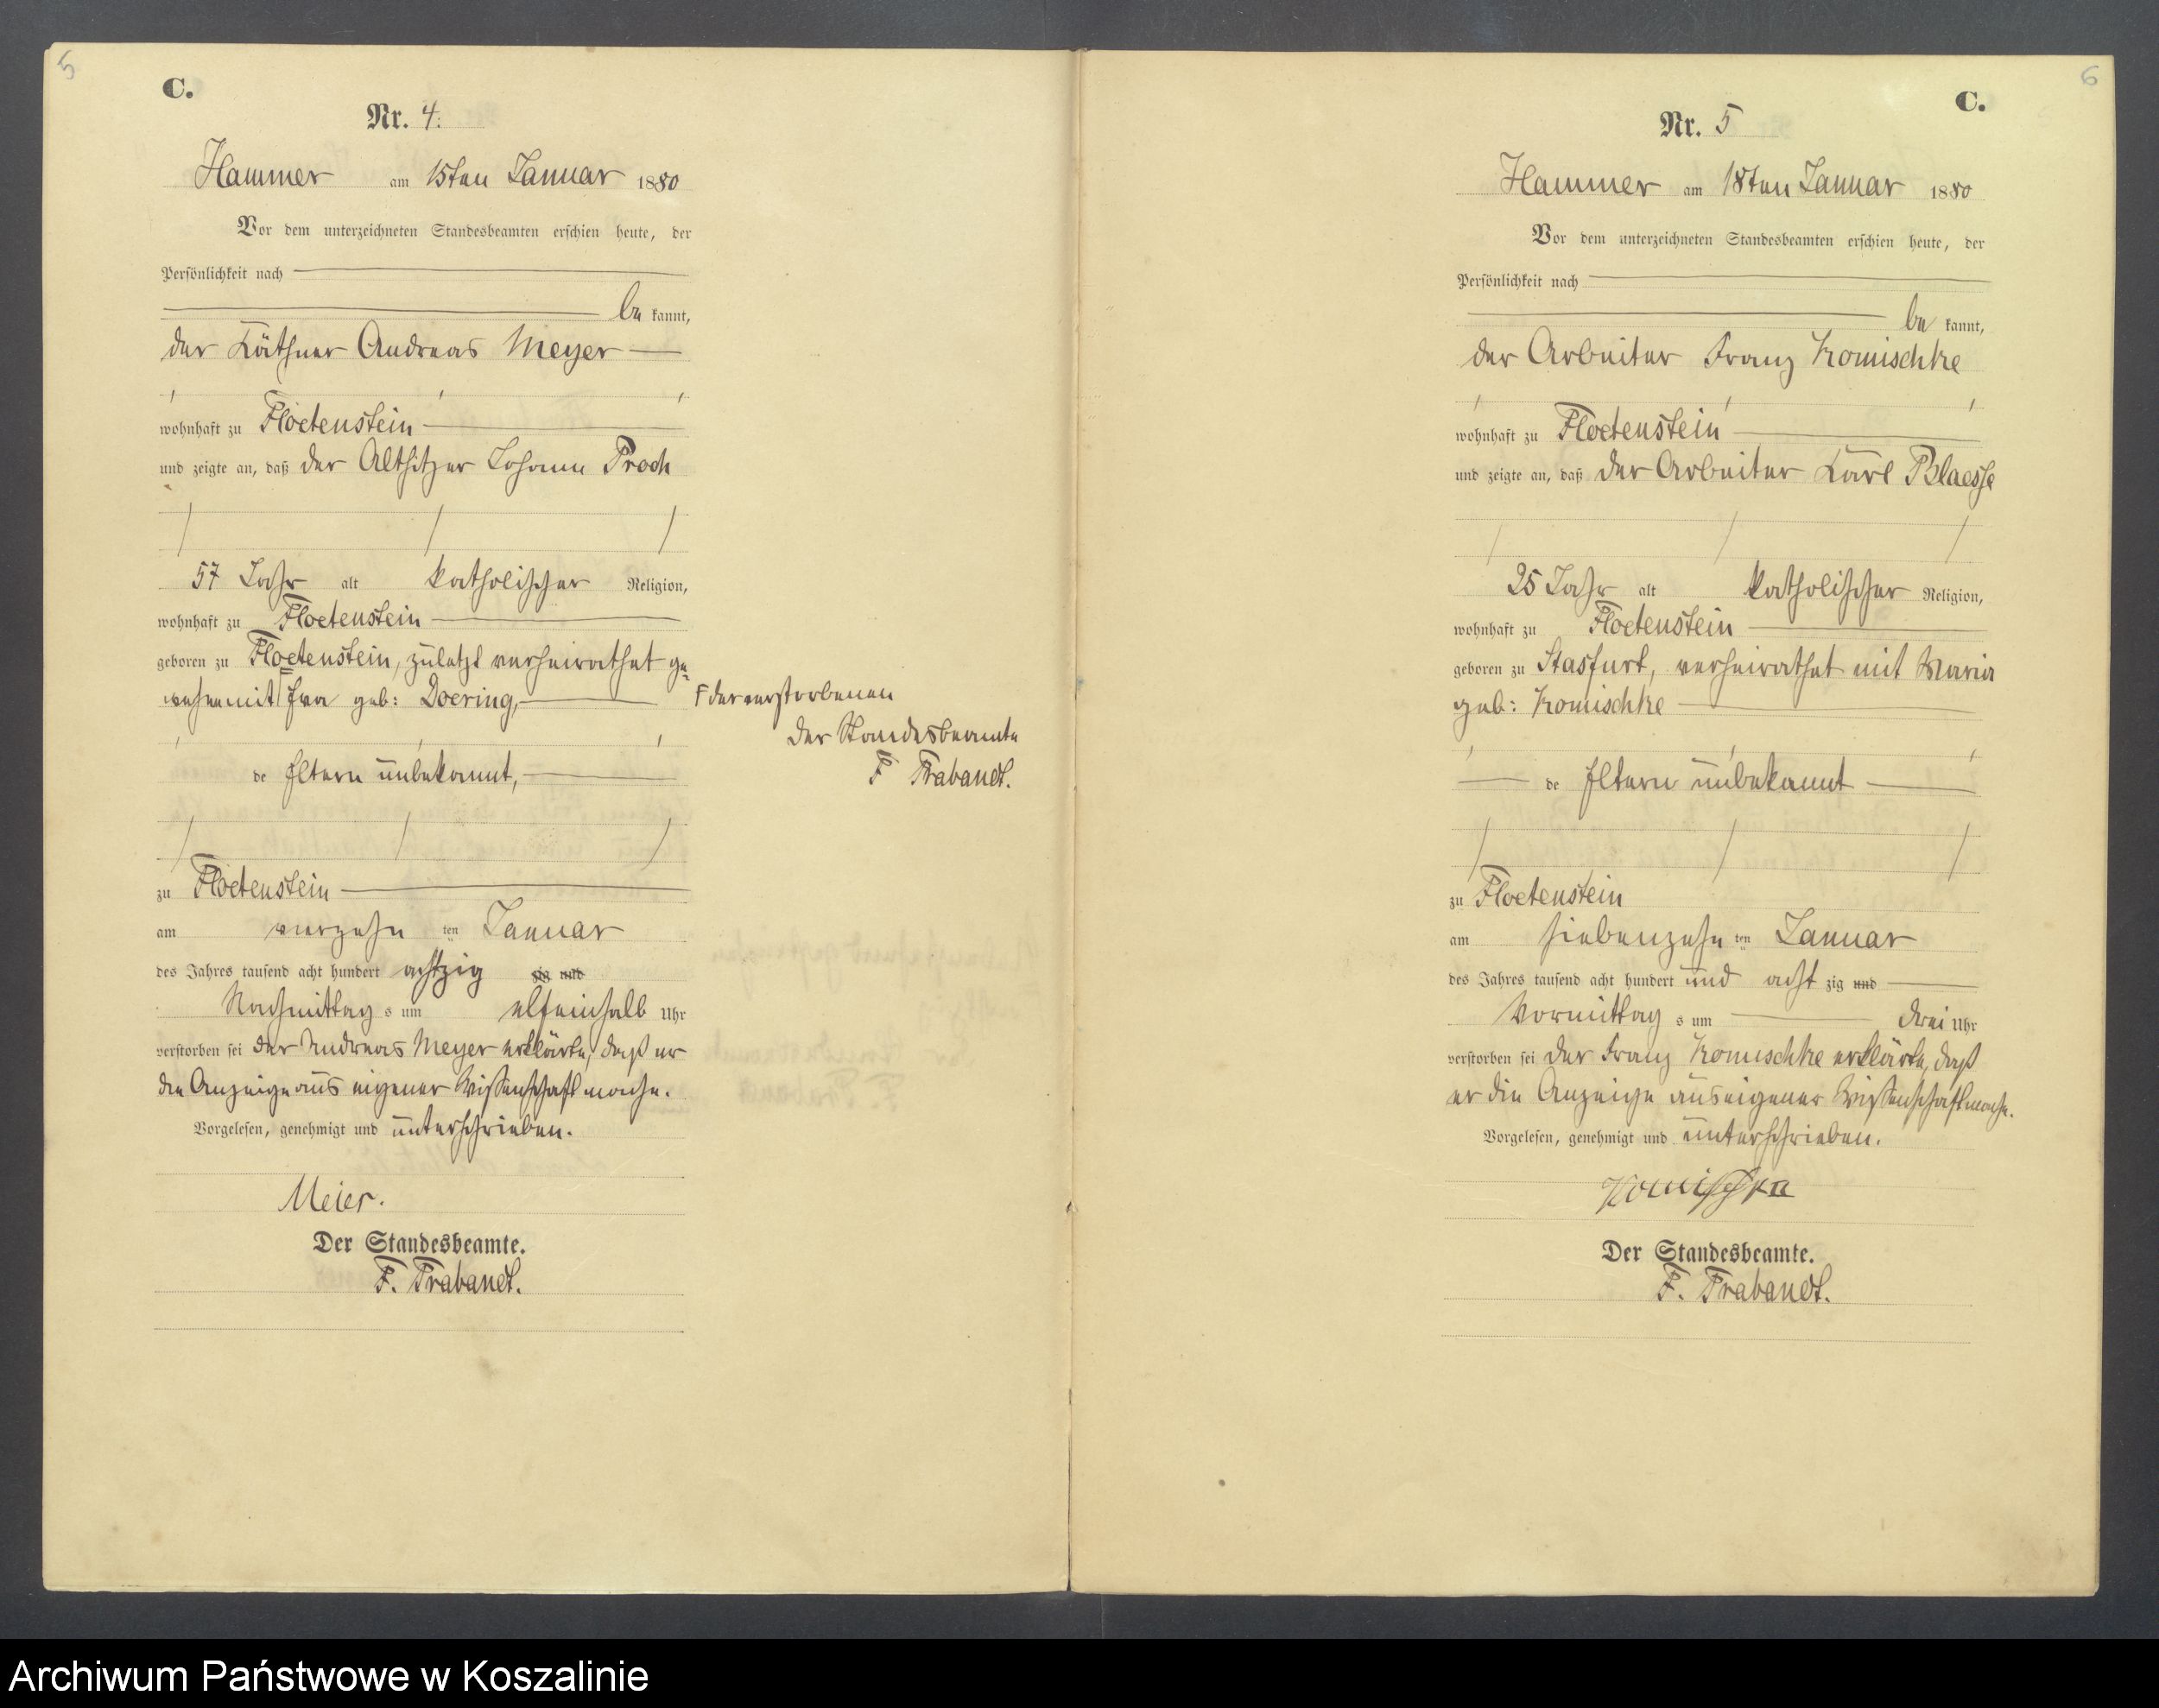 5
C.
Nr. 4.
Hammer am 15ten Januar 1880
Vor dem unterzeichneten Standesbeamten erschien heute, der
Persönlichkeit nach
be kannt,
der Käthner Andreas Meyer
wohnhaft zu Floetenstein
und zeigte an, daß der Altsitzer Johann Proch
57 Jahr alt katholischer Religion,
wohnhaft zu Floetenstein
geboren zu Floetenstein, zuletzt verheirathet ge=
wesen mit Eva geb: Doering,
de Eltern unbekannt,
zu Floetenstein
am vierzehn ten Januar
des Jahres tausend acht hundert achtzig zig und
Nachmittag s um elfeinhalb Uhr
verstorben sei der Andreas Meyer erklärte, daß er
die Anzeige aus eigener Wissenschaft mache.
Vorgelesen, genehmigt und unterschrieben.
Meier.
Der Standesbeamte.
F. Trabandt.
der verstorbenen
Der Standesbeamte
F Trabandt.
6
C.
Nr. 5
Hammer am 18ten Januar 1880
Vor dem unterzeichneten Standesbeamten erschien heute, der
Persönlichkeit nach
be kannt,
der Arbeiter Franz Komischke
wohnhaft zu Floetenstein
und zeigte an, daß der Arbeiter Karl Blaesse
25 Jahr alt katholischer Religion,
wohnhaft zu Floetenstein
geboren zu Stasfurt, verheirathet mit Maria
geb: Komischke
de Eltern unbekannt
zu Floetenstein
am siebenzehn ten Januar
des Jahres tausend acht hundert und acht zig und
Vormittag s um drei Uhr
verstorben sei der Franz Komischke erklärte, daß
er die Anzeige aus eigener Wissenschaft mache.
Vorgelesen, genehmigt und unterschrieben.
Komischke
Der Standesbeamte.
F. Trabandt.
Archiwum Państwowe w Koszalinie